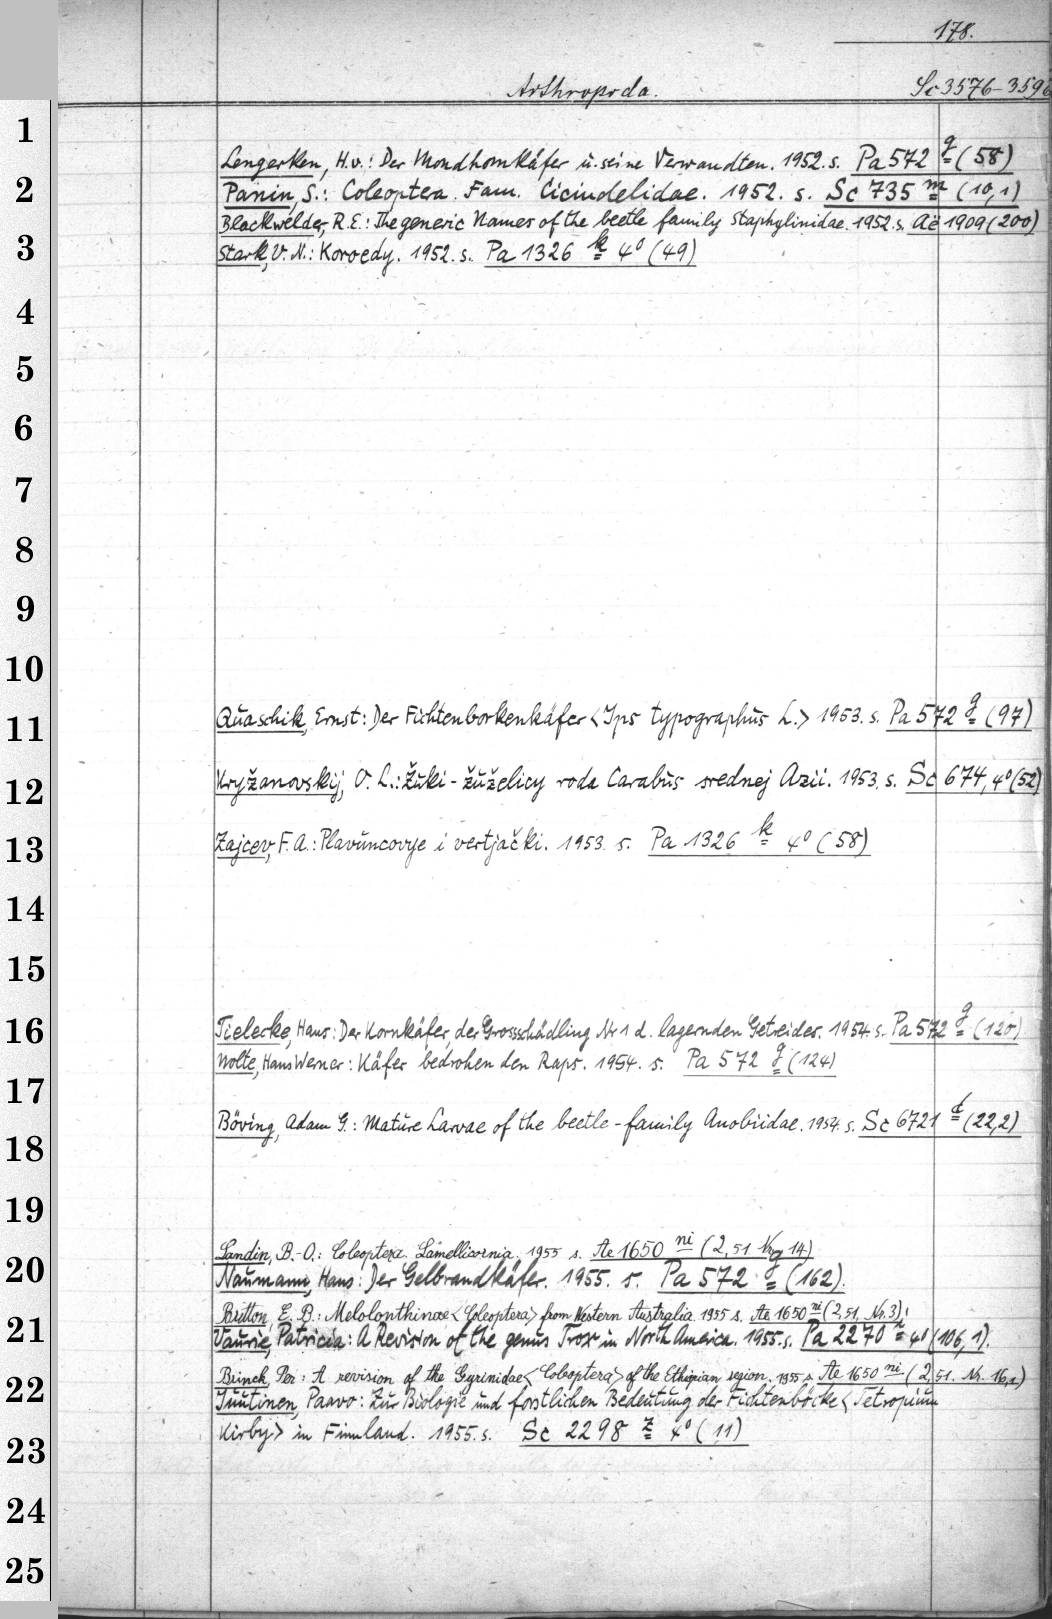 178.
Arthropoda. Sc 3576-3596
1
Lengerken, H.v.: Der Mondhornkäfer u. seine Verwandten. 1952. s. Pa 572 g (58)
2
Panin, S.: Coleoptera. Fam. Cicindelidae. 1952. s. Sc 735 m (10,1)
Blackwelder, R.E.: The generic Names of the beetle family Staphylinidae. 1952. s. Ac 1909 (200)
3
Stark, V. N.: Koroedy. 1952. s. Pa 1326 k 4° (49)
4
5
6
7
8
9
10
11
Quaschik, Ernst: Der Fichtenborkenkäfer <Ips typographus L.> 1953. s. Pa 572 g (97)
12
Kryžanovskij, O. L.: Žuki-žuželicy roda Carabus srednej Azii. 1953. s. Sc 674, 4° (52)
13
Zajcev, F. A.: Plavuncovye i vertjački. 1953. s. Pa 1326 k 4° (58)
14
15
16
Tielecke, Hans: Der Kornkäfer, der Grossschädling Nr 1 d. lagernden Getreides. 1954. s. Pa 572 g (120)
Nolte, Hans Werner: Käfer bedrohen den Raps. 1954. s. Pa 572 g (124)
17
Böving, Adam G.: Mature Larvae of the beetle-family Anobiidae. 1954. s. Sc 6721 d (22,2)
18
19
Landin, B.-O.: Coleoptera. Lamellicornia. 1955 s. Ae 1650 ni (2, 51 Nr 14)
20
Naumann, Hans: Der Gelbrandkäfer. 1955. s. Pa 572 g (162).
Britton, E. B.: Melolonthinae <Coleoptera> from Western Australia. 1955 s. Ae 1650 ni (2, 51, Nr. 3)
21
Vaurie, Patricia: A Revision of the genus Trox in North America. 1955. s. Pa 2270 4° (106, 1).
Brinck, Per: A revision of the Gyrinidae <Coleoptera> of the Ethiopian region. 1955 s. Ae 1650 ni (2, 51. Nr. 16,1)
22
Juutinen, Paavo: Zur Biologie und forstlichen Bedeutung der Fichtenböcke <Tetropium
Kirby> in Finnland. 1955. s. Sc 2298 z 4° (11)
23
24
25